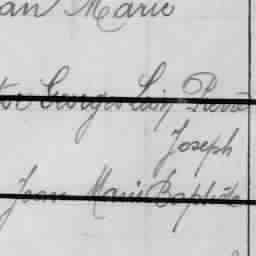 an Marie
Georges Luis Pierre
Joseph
Jean Marie Baptiste